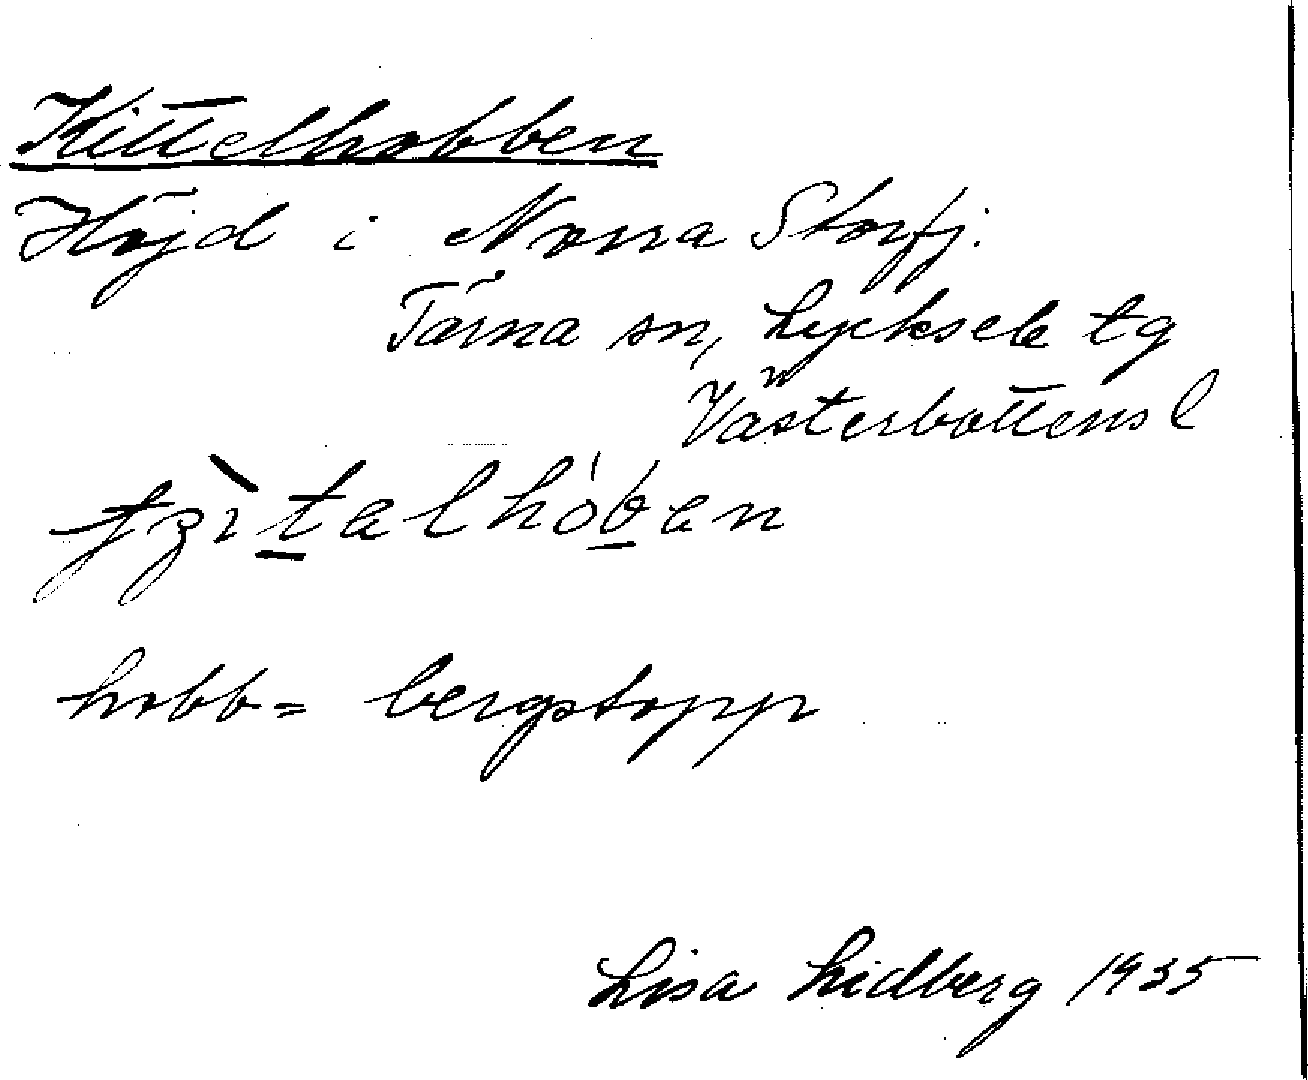 Kittelhobben
Höjd i Norra Storfj.
Tärna sn, Lycksele tg
Västerbottens l
hobb = bergstopp
Lisa Lidberg 1935